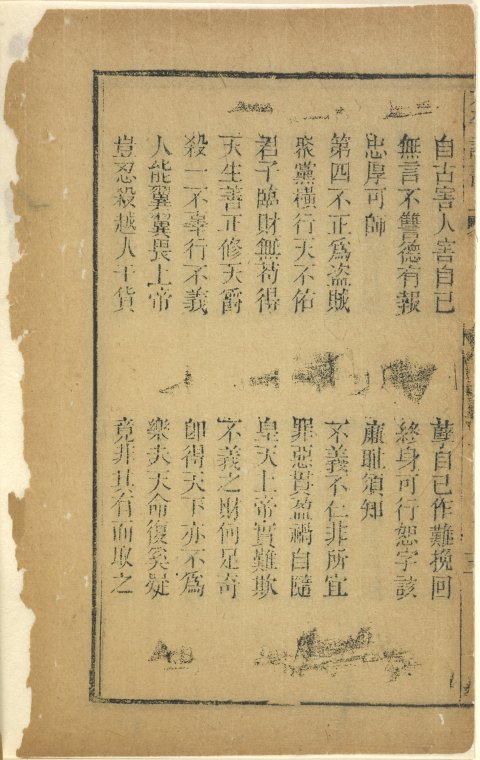 自古害人害自己　孽自己作難挽回
無言不讐德有報　終身可行恕字該
忠厚可師　廉耻須知
第四不正爲盜賊　不義不仁非所宜
聚黨橫行天不佑　罪惡貫盈禍自隨
君子臨財無苟得　皇天上帝實難欺
天生善正修天爵　不義之財何足奇
殺一不辜行不義　卽得天下亦不爲
人能翼翼畏上帝　樂夫天命復奚疑
豈忍殺越人于貨　竟非其有而取之